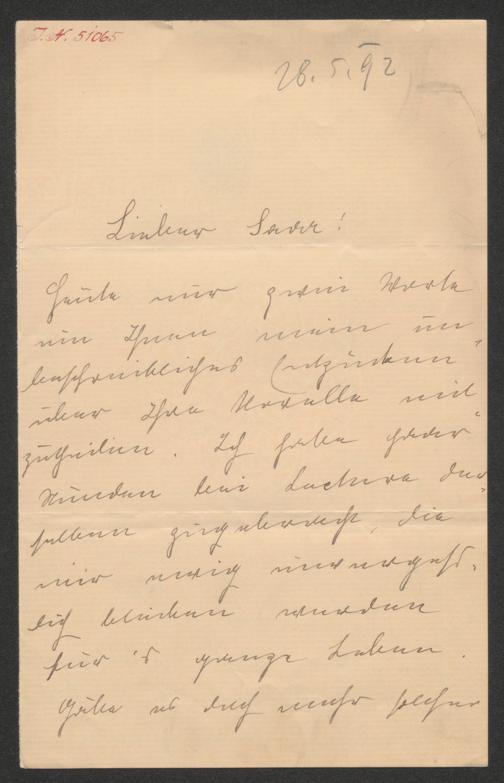 I. N. 51065
28. 5. 92
Lieber Saar!
Heute nur zwei Worte
um Ihnen mein un
beschreibliches Entzücken
über Ihre Novelle mit
zutheilen. Ich habe
Stunden bei Lecture der
selben zugebracht, die
mir ewig unvergeß-
lich bleiben werden
für's ganze Leben.
Gäbe es doch mehr solcher